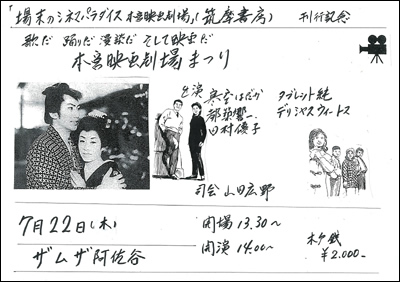 「場末のシネマパラダイス 本宮映画劇場」(筑摩書房) 刊行記念
歌だ 踊りだ 漫談だ そして映画だ
本宮映画劇場まつり
出演 寒空はだか
都築響一
田村優子
タブレット純
デリシャスウィートス
司会 山田広野
7月22日(木)
ザムザ阿佐谷
開場 13.30〜
開演 14.00〜
木戸銭
¥2.000-